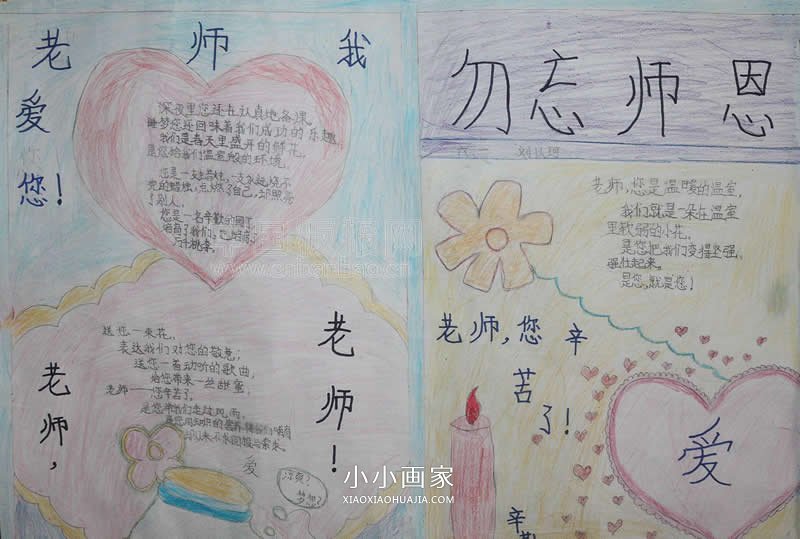 老师我
爱
您！
深夜里您还在认真地备课
睡梦您还回味着我们成功的乐趣
我们是春天里盛开的鲜花,
是您给我们温室般的环境
您是一支蜡烛,一支永远烧不
完的蜡烛,点燃了自己,却照亮
了别人。
您是一名辛勤的园丁
老师,
老师！
送您一束花,
表达我们对您的敬意;
送您一首动听的歌曲,
给您带来一丝甜蜜,
老师——您辛苦了,
是您带我们走过风雨,
爱
梦想?
勿忘师恩
老师,您是温暖的温室,
我们就是一朵在温室
里软弱的小花,
是您把我们变得坚强,
强壮起来。
是您,就是您!
老师,您辛
苦
了!
爱
辛
小小画家
XIAOXIAOHUAJIA.COM